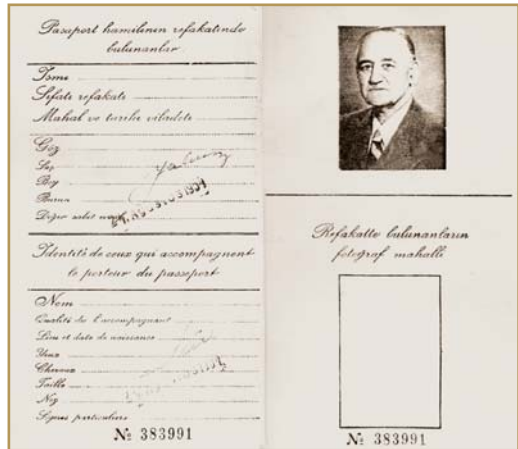 Pasaport hamilinin refakatinde
bulunanlar
İsmi
Sıfatı refakatı
Mahal ve tarihi viladeti
Göz
Saç
Boy
Burun
Diğer
Identité de ceux qui accompagnent
le porteur du passeport
Nom
Qualité de l'accompagnant
Lieu et date de naissance
Yeux
Cheveux
Taille
Nez
Signes particuliers
№ 383991
Refakatte bulunanların
fotoğraf mahalli
№ 383991